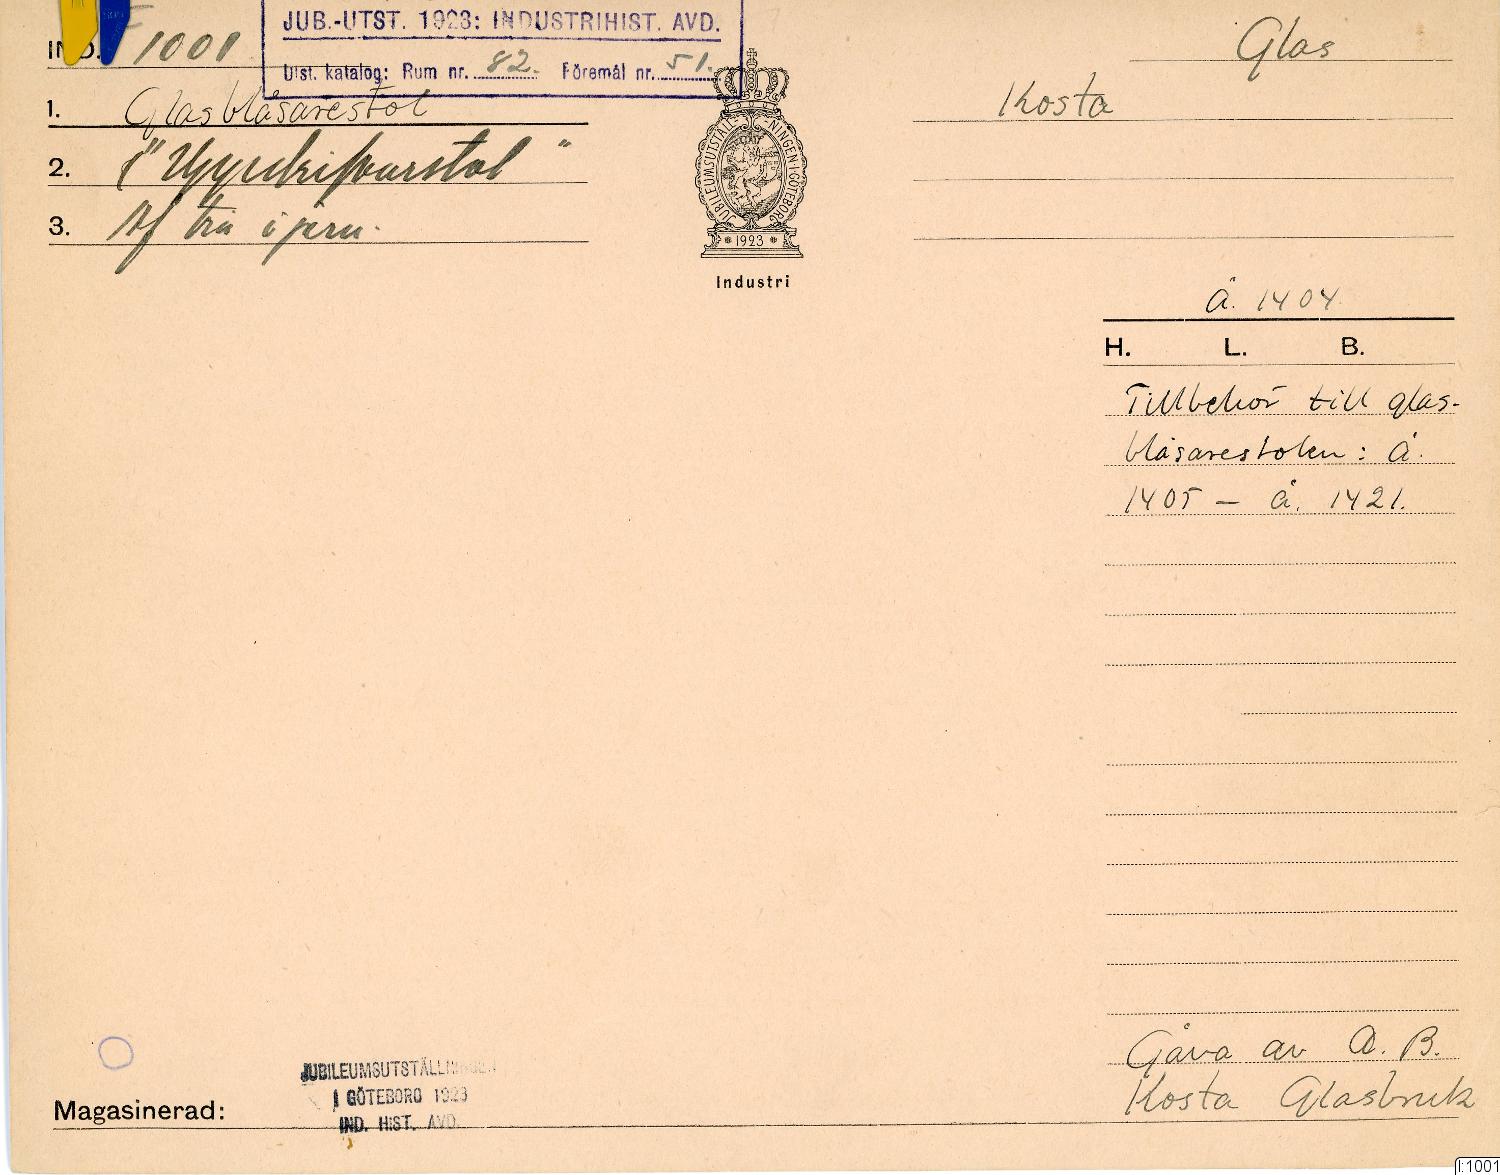 JUB.-UTST. 1923: INDUSTRIHIST. AVD.
Utst. katalog: Rum nr. 82. Föremål nr. 51.
IND. 1001
Glas
1. Glasblåsarestol
Kosta
2. "
3. Af trä i jern.
JUBILEUMSUTSTÄLLNINGEN I GÖTEBORG
* 1923 *
Industri
Å. 1404
H. L. B.
Tillbehör till glas-
blåsarestolen: Å.
1405 – Å. 1421.
Gåva av A. B.
Kosta Glasbruk
JUBILEUMSUTSTÄLLNINGEN
I GÖTEBORG 1923
IND. HIST. AVD.
Magasinerad:
I:1001